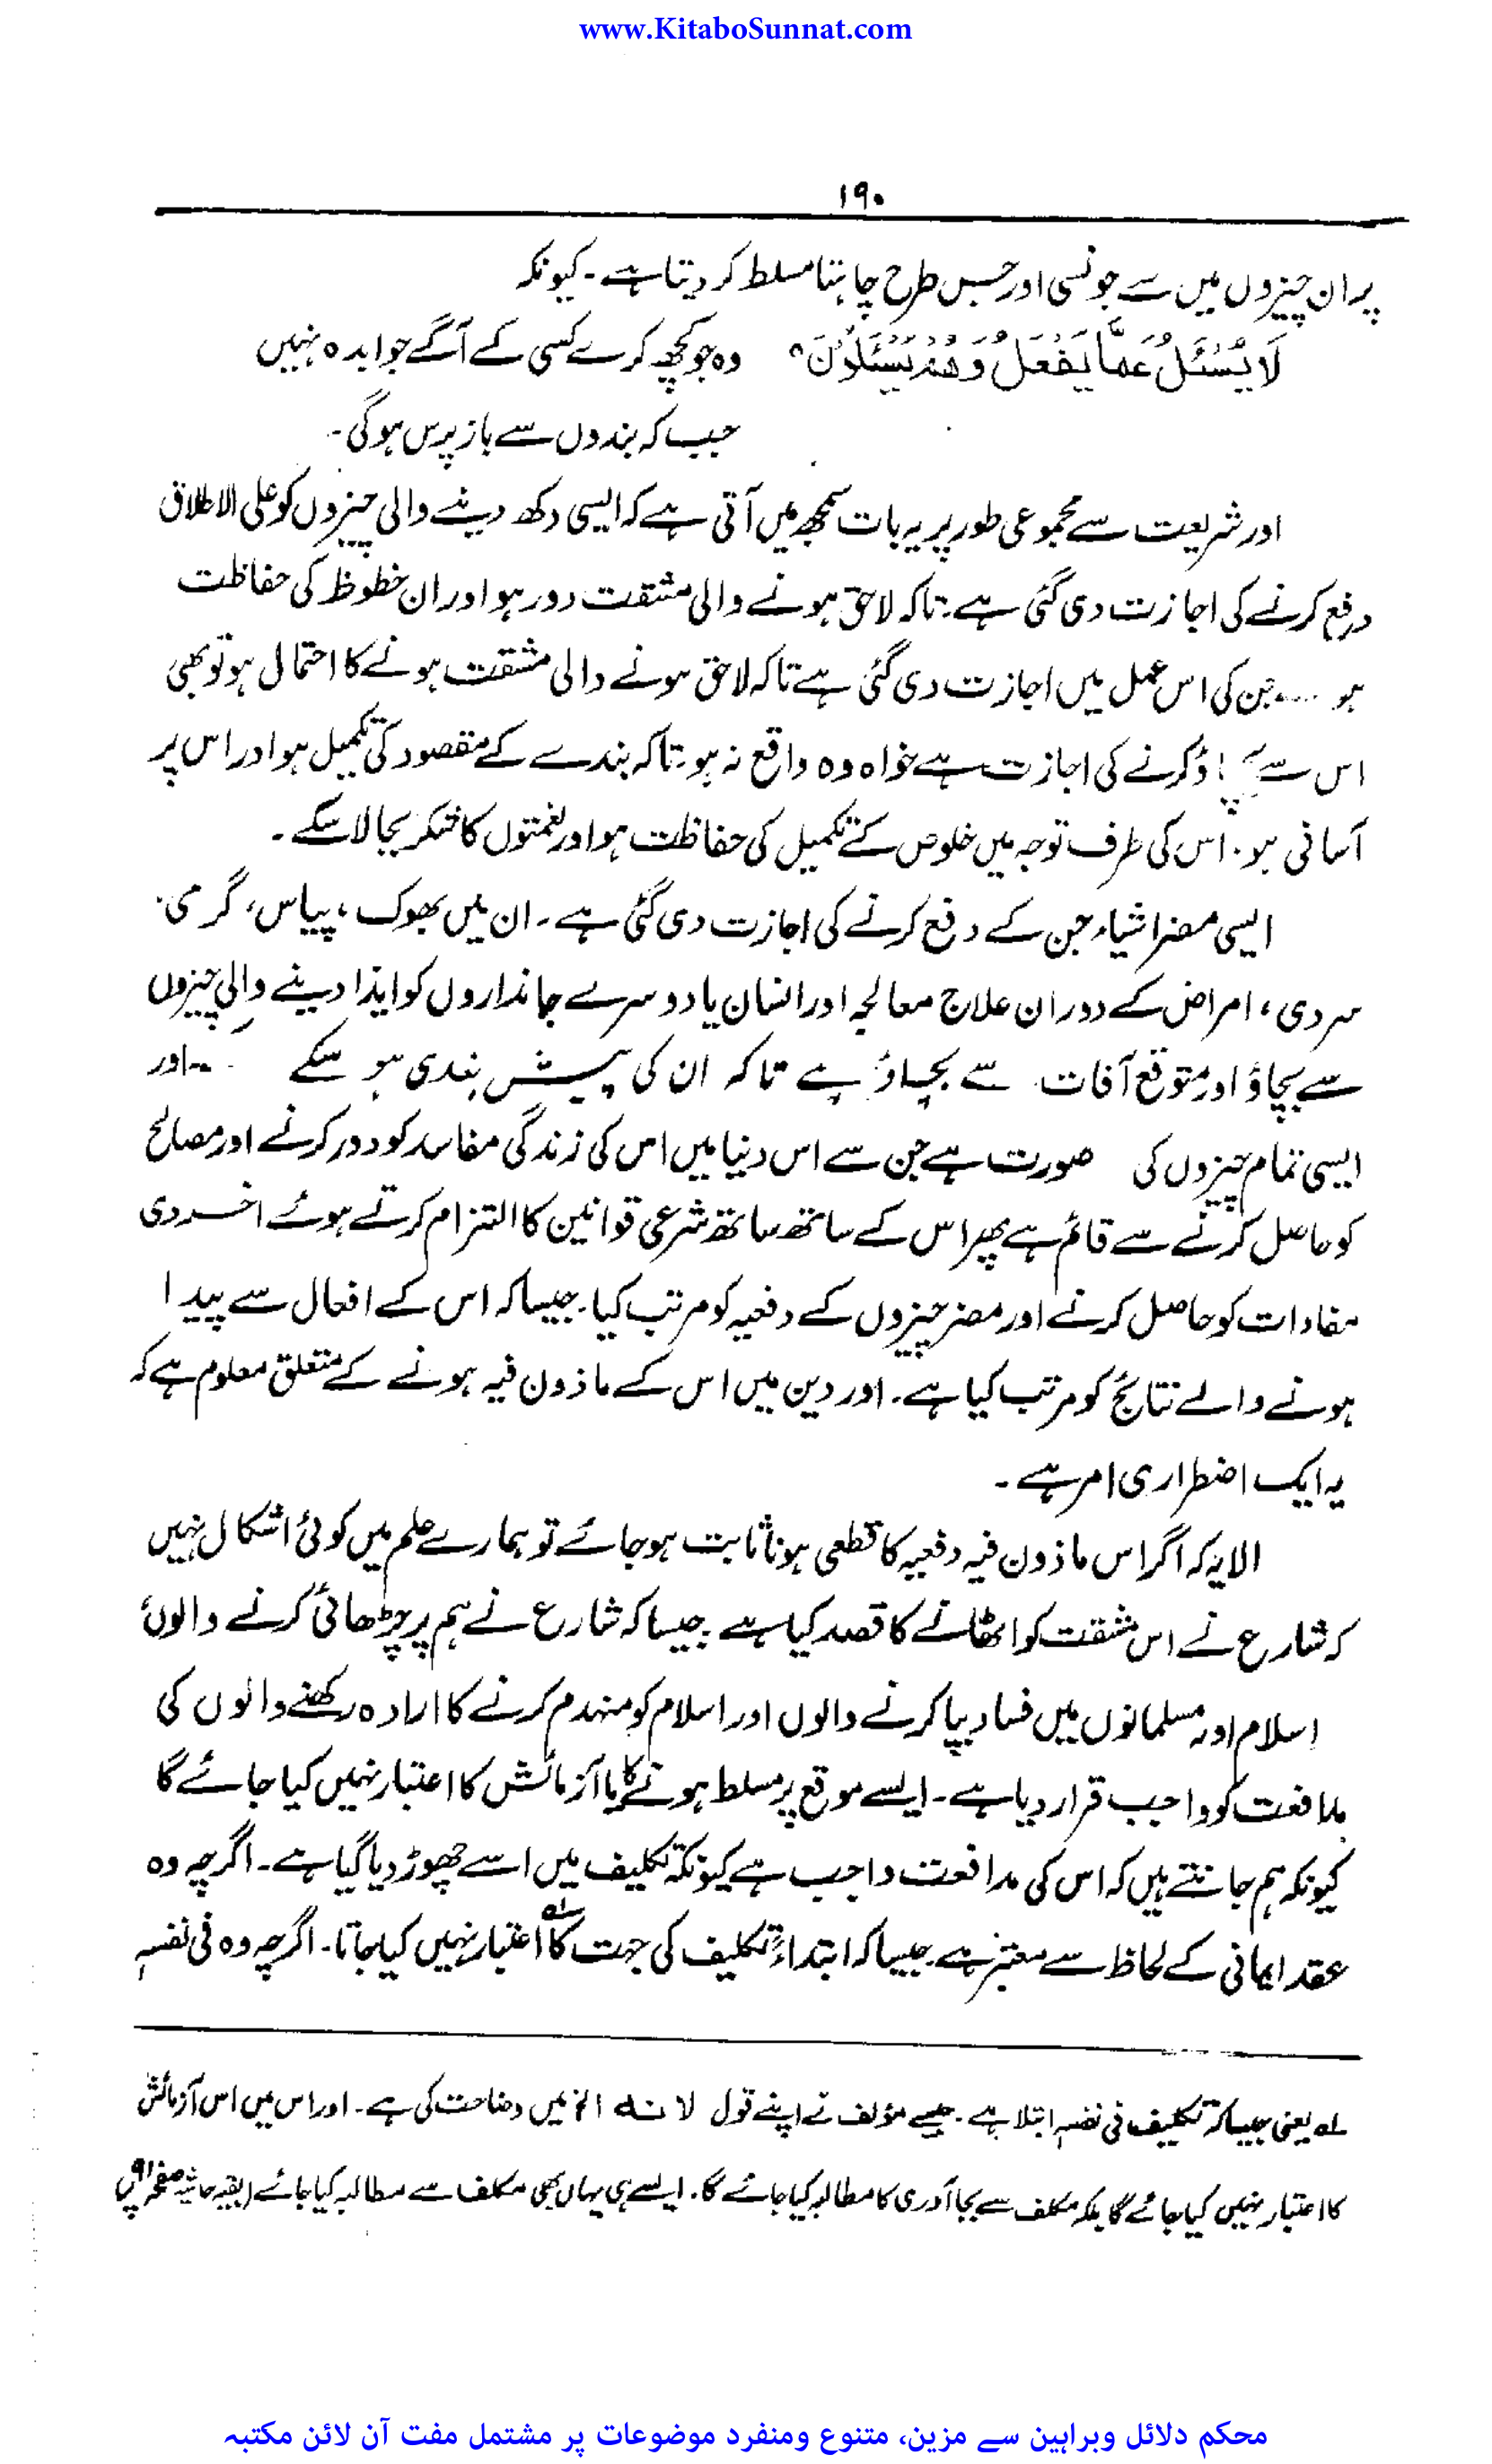 www.KitaboSunnat.com
۱۹۰
پر ان چیزوں میں سے جونسی اور جس طرح چاہتا مسلط کر دیتا ہے۔ کیونکہ
لَا يُسْئَلُ عَمَّا يَفْعَلُ وَهُمْ يُسْئَلُوْنَ ہ وہ جو کچھ کرے کسی کے آگے جوابدہ نہیں
جب کہ بندوں سے باز پرس ہو گی۔
اور شریعت سے مجموعی طور پر یہ بات سمجھ میں آتی ہے کہ ایسی دکھ دینے والی چیزوں کو علی الاطلاق
دفع کرنے کی اجازت دی گئی ہے۔ تاکہ لاحق ہونے والی مشقت دور ہو اور ان حظوظ کی حفاظت
ہو ۔۔۔۔ جن کی اس عمل میں اجازت دی گئی ہے تاکہ لاحق ہونے والی مشقت ہونے کا احتمال ہو تو بھی
اس سے کرنے کی اجازت ہے خواہ وہ واقع نہ ہو۔ تاکہ بندے کے مقصود کی تکمیل ہو اور اس پر
آسانی ہو۔ اس کی طرف توجہ میں خلوص کے تکمیل کی حفاظت ہو اور نعمتوں کا شکر بجا لا سکے۔
ایسی مضر اشیاء جن کے دفع کرنے کی اجازت دی گئی ہے۔ ان میں بھوک، پیاس، گرمی،
سردی، امراض کے دوران علاج معالجہ اور انسان یا دوسرے جانداروں کو ایذا دینے والی چیزوں
سے بچاؤ اور متوقع آفات سے بچاؤ ہے تاکہ ان کی پیش بندی ہو سکے ۔۔اور
ایسی تمام چیزوں کی صورت ہے جن سے اس دنیا میں اس کی زندگی مفاسد کو دور کرنے اور مصالح
کو حاصل کرنے سے قائم ہے پھر اس کے ساتھ ساتھ شرعی قوانین کا التزام کرتے ہوئے اخروی
مفادات کو حاصل کرنے اور مضر چیزوں کے دفعیہ کو مرتب کیا۔ جیسا کہ اس کے افعال سے پیدا
ہونے والے نتائج کو مرتب کیا ہے۔ اور دین میں اس کے ماذون فیہ ہونے کے متعلق معلوم ہے کہ
یہ ایک اضطراری امر ہے۔
الا یہ کہ اگر اس ماذون فیہ دفعیہ کا قطعی ہونا ثابت ہو جائے تو ہمارے علم میں کوئی اشکال نہیں
کہ شارع نے اس مشقت کو اٹھانے کا قصد کیا ہے جیسا کہ شارع نے ہم پر چڑھائی کرنے والوں،
اسلام اور مسلمانوں میں فساد بپا کرنے والوں اور اسلام کو منہدم کرنے کا ارادہ رکھنے والوں کی
مدافعت کو واجب قرار دیا ہے۔ ایسے موقع پر مسلط ہونے کا یا آزمائش کا اعتبار نہیں کیا جائے گا
کیونکہ ہم جانتے ہیں کہ اس کی مدافعت واجب ہے کیونکہ تکلیف میں اسے چھوڑ دیا گیا ہے۔ اگرچہ وہ
عقد ایمانی کے لحاظ سے معتبر ہے جیسا کہ ابتداءً تکلیف کی جہت کا اعتبار نہیں کیا جاتا۔ اگرچہ وہ فی نفسہٖ
لہ یعنی جیسا کہ تکلیف فی نفسہٖ ابتلا ہے۔ جیسے مؤلف نے اپنے قول لانہ الخ میں وضاحت کی ہے۔ اور اس میں اس آزمائش
کا اعتبار نہیں کیا جائے گا بلکہ مکلف سے بجا آوری کا مطالبہ کیا جائے گا۔ ایسے ہی یہاں بھی مکلف سے مطالبہ کیا جائے (بقیہ حاشیہ صفحہ ۱۹۱ پر
محکم دلائل وبراہین سے مزین، متنوع ومنفرد موضوعات پر مشتمل مفت آن لائن مکتبہ